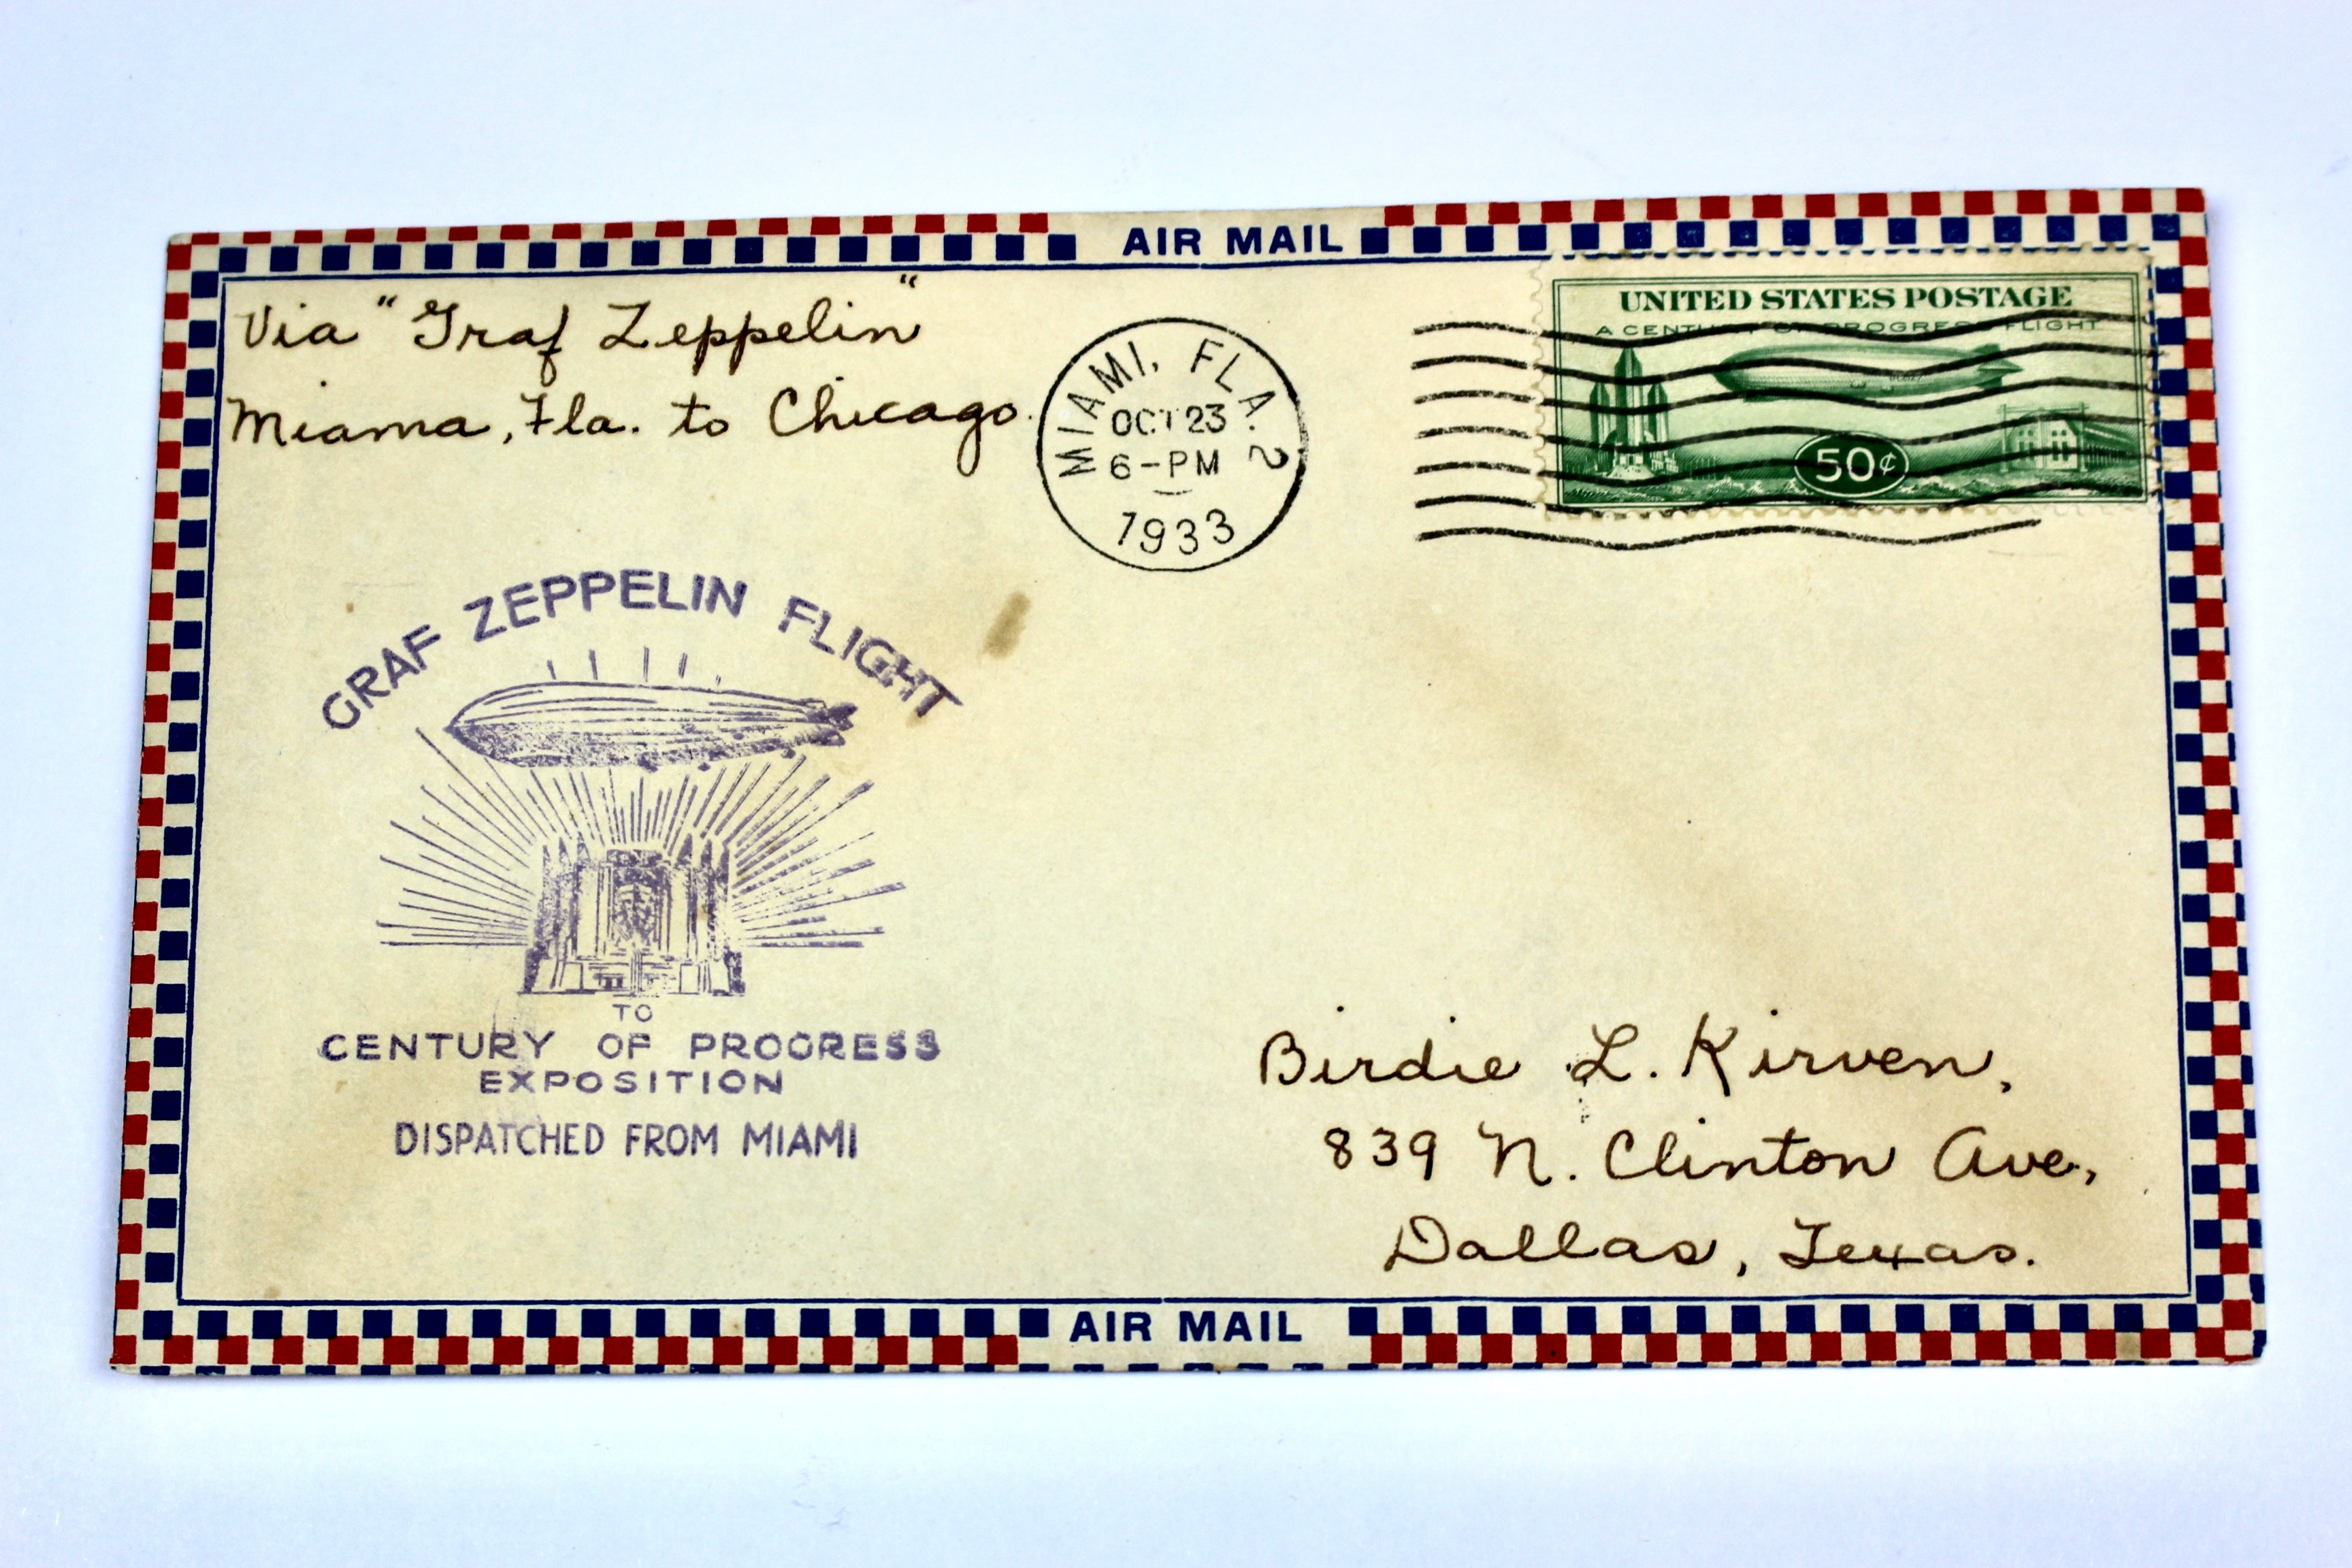 AIR MAIL
Via "Graf Zeppelin"
Miama, Fla. to Chicago.
MIAMI, FLA. 2
OCT 23
6-PM
1933
UNITED STATES POSTAGE
A CENTURY OF PROGRESS FLIGHT
50¢
GRAF ZEPPELIN FLIGHT
TO
CENTURY OF PROGRESS
EXPOSITION
DISPATCHED FROM MIAMI
Birdie L. Kirven,
839 N. Clinton Ave.,
Dallas, Texas.
AIR MAIL